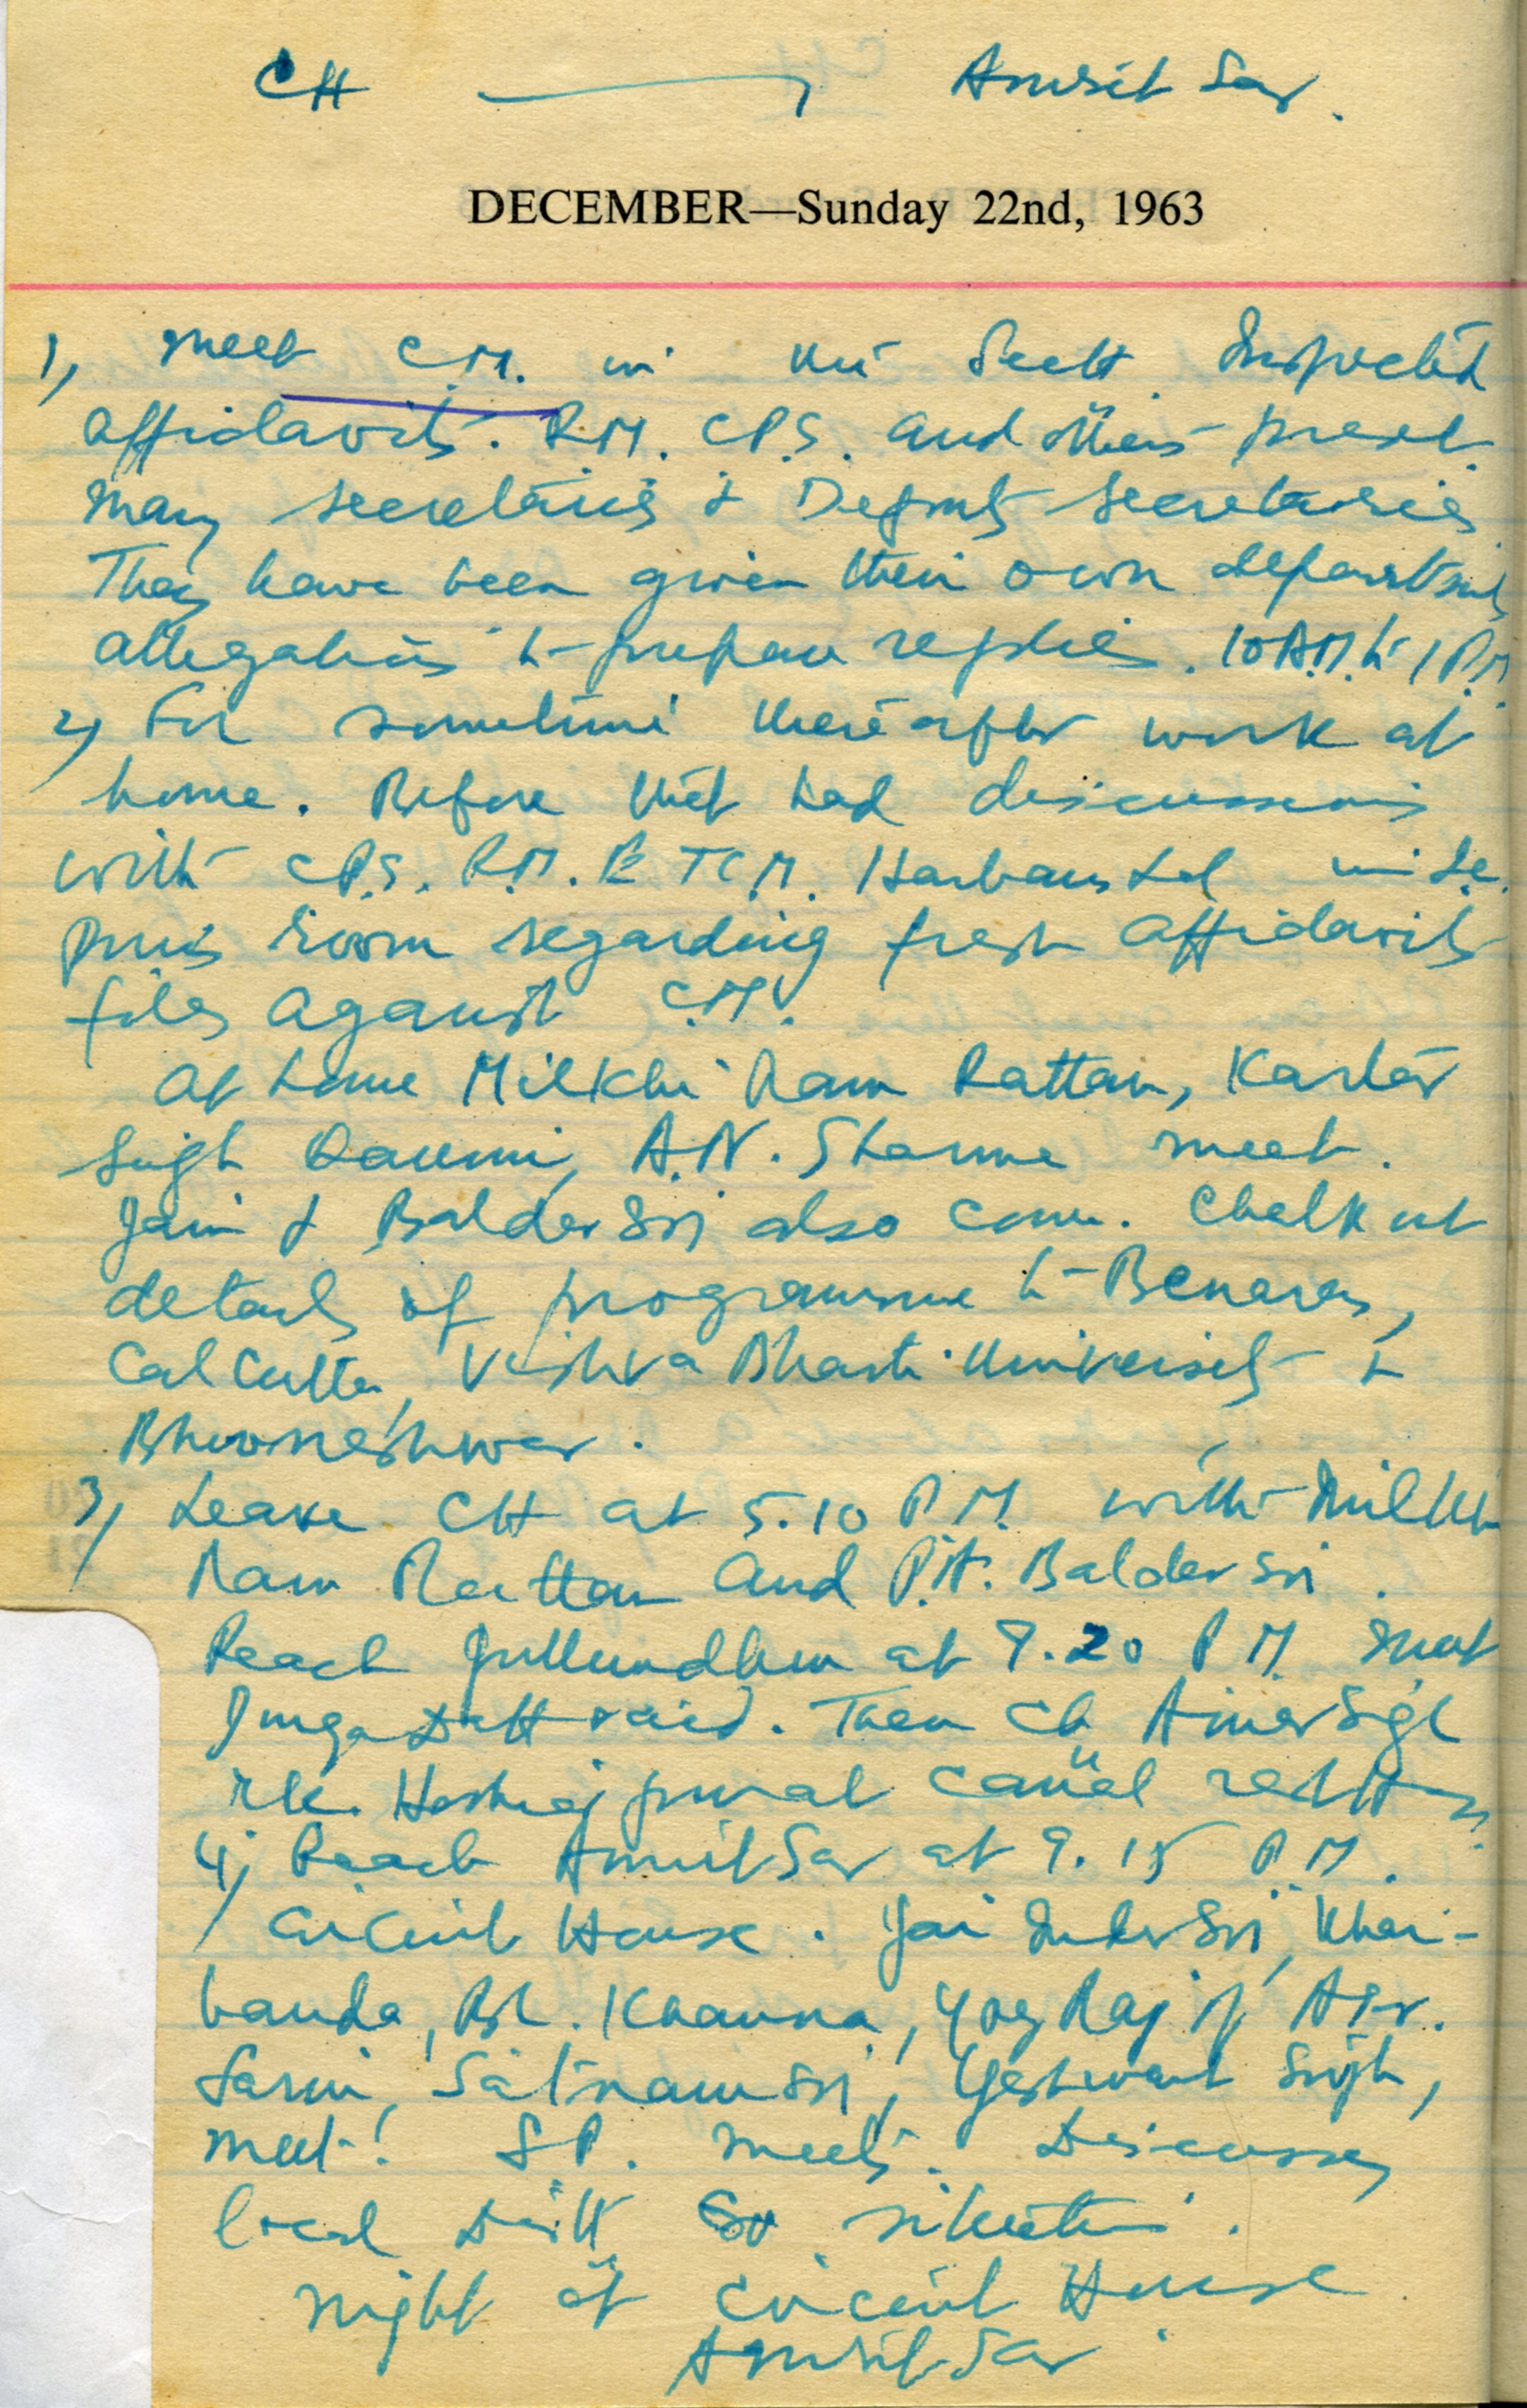 CH → Amrit Sar.
DECEMBER—Sunday 22nd, 1963
1) meet C.M. in his Sectt. Inspected
affidavits. R.M. C.P.S. and others present.
Many secretaries & Deputy Secretaries
They have been given their own departments
allegations to prepare replies. 10 A.M. to 1 P.M.
2) For sometime thereafter work at
home. Before that had discussions
with C.P.S. R.M. Harbans Lal in
room regarding fresh affidavits
files against C.M.
At home Milkhi Ram Rattan, Kartar
Singh A.N. Sharma meet.
Jain & Baldev Sri also come. Chalk out
details of programme to Benaras,
Calcutta, Vishva Bharti University &
Bhuvneshwar.
3) Leave CH at 5.10 P.M. with Milkhi
Ram Rattan and P.A. Baldev Sri.
Reach Jullundhur at 7.20 P.M. meet
Durga Datt. Then Ch. Amar Sigh
re.
4) Reach Amrit Sar at 9.15 P.M.
Circuit House. Jai Inder Sri, Khar-
banda, Khanna, Yog Raj of
Satnam Sri, Yashwant Singh,
meet. S.P. meets. Discusses
local Distt situation.
night at Circuit House
Amrit Sar